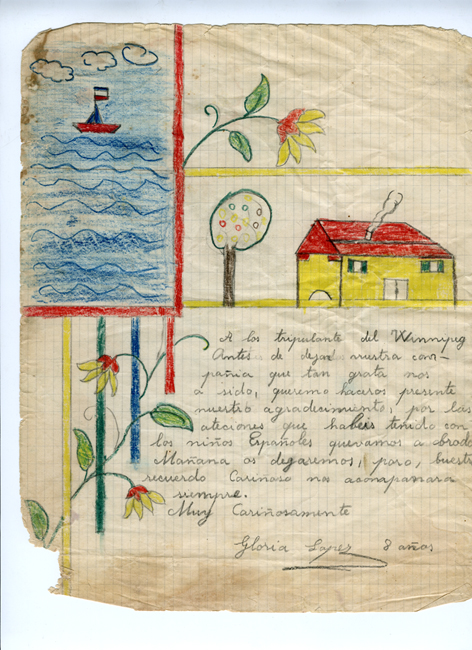 A los tripulante del Winnipeg
Antes de dejar nuestra com-
pañia que tan grata nos
a sido, queremo haceros presente
nuestro agradecimiento, por las
ateciones que habeis tenido con
los niños Españoles quevamos a brodo
Mañana os degaremos, pero, buestro
recuerdo Cariñoso nos acompañara
siempre.
Muy Cariñosamente
Gloria Lopez 8 años